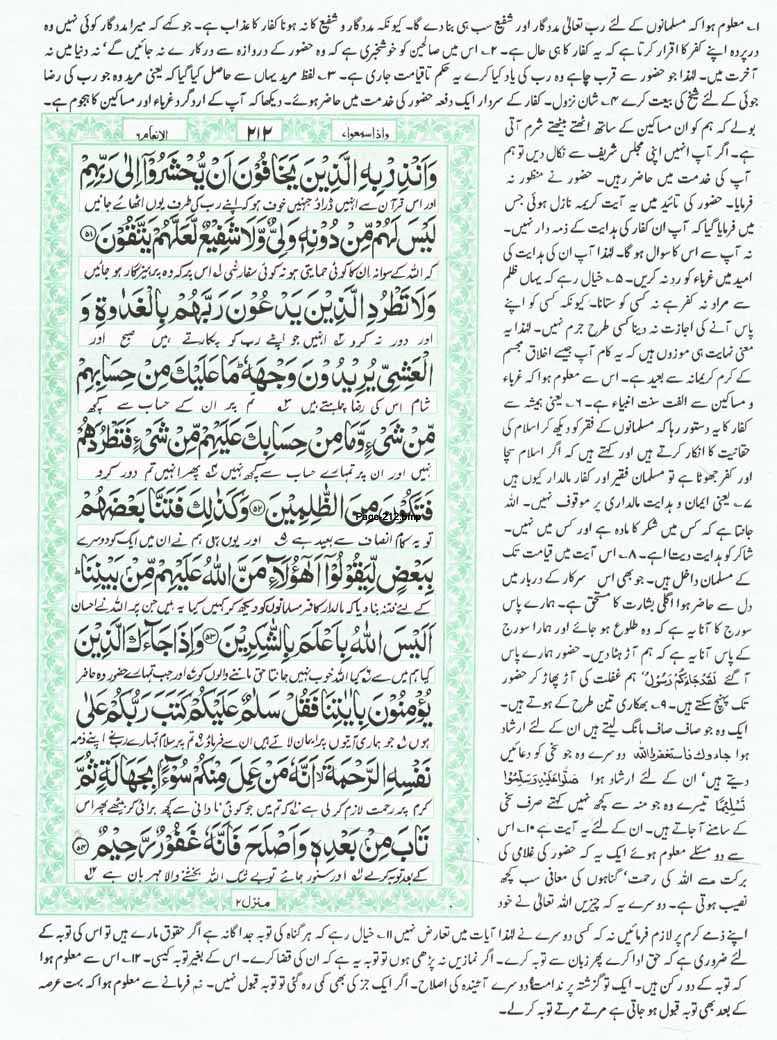 ۱؎ معلوم ہوا کہ مسلمانوں کے لئے رب تعالیٰ مددگار اور شفیع سب ہی بنا دے گا۔ کیونکہ مددگار و شفیع کا نہ ہونا کفار کا عذاب ہے۔ جو کہے کہ میرا مددگار کوئی نہیں وہ
در پردہ اپنے کفر کا اقرار کرتا ہے کہ یہ کفار کا ہی حال ہے۔ ۲؎ اس میں صالحین کو خوشخبری ہے کہ وہ حضور کے دروازہ سے درکارے نہ جائیں گے' نہ دنیا میں نہ
آخرت میں۔ لہٰذا جو حضور سے قرب چاہے وہ رب کی یاد کیا کرے یہ حکم تاقیامت جاری ہے۔ ۳؎ لفظ مرید یہاں سے حاصل کیا گیا کہ یعنی مرید وہ جو رب کی رضا
جوئی کے لئے شیخ کی بیعت کرے ۴؎ شان نزول۔ کفار کے سردار ایک دفعہ حضور کی خدمت میں حاضر ہوئے۔ دیکھا کہ آپ کے اردگرد غرباء اور مساکین کا ہجوم ہے۔
بولے کہ ہم کو ان مساکین کے ساتھ اٹھتے بیٹھتے شرم آتی
ہے۔ اگر آپ انہیں اپنی مجلس شریف سے نکال دیں تو ہم
آپ کی خدمت میں حاضر رہیں۔ حضور نے منظور نہ
فرمایا۔ حضور کی تائید میں یہ آیت کریمہ نازل ہوئی جس
میں فرمایا گیا کہ آپ ان کفار کی ہدایت کے ذمہ دار نہیں۔
نہ آپ سے اس کا سوال ہو گا۔ لہٰذا آپ ان کی ہدایت کی
امید میں غرباء کو رد نہ کریں۔ ۵؎ خیال رہے کہ یہاں ظلم
سے مراد نہ کفر ہے نہ کسی کو ستانا۔ کیونکہ کسی کو اپنے
پاس آنے کی اجازت نہ دینا کسی طرح جرم نہیں۔ لہٰذا یہ
معنی نہایت ہی موزوں ہیں کہ یہ کام آپ جیسے اخلاق مجسم
کے کرم کریمانہ سے بعید ہے۔ اس سے معلوم ہوا کہ غرباء
و مساکین سے الفت سنت انبیاء ہے۔ ۶؎ یعنی ہمیشہ سے
کفار کا یہ دستور رہا کہ مسلمانوں کے فقر کو دیکھ کر اسلام کی
حقانیت کا انکار کرتے ہیں اور کہتے ہیں کہ اگر اسلام سچا
اور کفر جھوٹا ہے تو مسلمان فقیر اور کفار مالدار کیوں ہیں
۷؎ یعنی ایمان و ہدایت مالداری پر موقوف نہیں۔ اللہ
جانتا ہے کہ کس میں شکر کا مادہ ہے اور کس میں نہیں۔
شاکر کو ہدایت دیتا ہے۔ ۸؎ اس آیت میں قیامت تک
کے مسلمان داخل ہیں۔ جو بھی اس سرکار کے دربار میں
دل سے حاضر ہوا اگلی بشارت کا مستحق ہے۔ ہمارے پاس
سورج کا آنا یہ ہے کہ وہ طلوع ہو جائے اور ہمارا سورج
کے پاس آنا یہ ہے کہ ہم آڑ ہٹا دیں۔ حضور ہمارے پاس
آ گئے لَقَدْ جَاءَكُمْ رَسُولٌ' ہم غفلت کی آڑ پھاڑ کر حضور
تک پہنچ سکتے ہیں۔ ۹؎ بھکاری تین طرح کے ہوتے ہیں۔
ایک وہ جو صاف صاف مانگ لیتے ہیں ان کے لئے ارشاد
ہوا جاءوك فاستغفروا الله دوسرے وہ جو سخی کو دعائیں
دیتے ہیں' ان کے لئے ارشاد ہوا صَلُّوا عَلَيْهِ وَسَلِّمُوا
تَسْلِيمًا تیسرے وہ جو منہ سے کچھ نہیں کہتے صرف سخی
کے سامنے آ جاتے ہیں۔ ان کے لئے یہ آیت ہے ۱۰؎ اس
سے دو مسئلے معلوم ہوئے ایک یہ کہ حضور کی غلامی کی
برکت سے اللہ کی رحمت' گناہوں کی معافی سب کچھ
نصیب ہوتی ہے۔ دوسرے یہ کہ جو چیزیں اللہ تعالیٰ نے خود
واذاسمعوا۷
۲۱۲
الانعام۶
وَاَنْذِرْ بِهِ الَّذِيْنَ يَخَافُوْنَ اَنْ يُّحْشَرُوْٓا اِلٰى رَبِّهِمْ
اور اس قرآن سے انہیں ڈراؤ جنہیں خوف ہو کہ اپنے رب کی طرف یوں اٹھائے جائیں
لَيْسَ لَهُمْ مِّنْ دُوْنِهٖ وَلِيٌّ وَّلَا شَفِيْعٌ لَّعَلَّهُمْ يَتَّقُوْنَ ۵۱
کہ اللہ کے سوا نہ ان کا کوئی حمایتی ہو نہ کوئی سفارشی ۱؎ اس پر کہ وہ پرہیزگار ہو جائیں
وَلَا تَطْرُدِ الَّذِيْنَ يَدْعُوْنَ رَبَّهُمْ بِالْغَدٰوةِ وَ
اور دور نہ کرو ۲؎ انہیں جو اپنے رب کو پکارتے ہیں صبح اور
الْعَشِيِّ يُرِيْدُوْنَ وَجْهَهٗ ؕ مَا عَلَيْكَ مِنْ حِسَابِهِمْ
شام اس کی رضا چاہتے ہیں ۳؎ تم پر ان کے حساب سے کچھ
مِّنْ شَيْءٍ وَّمَا مِنْ حِسَابِكَ عَلَيْهِمْ مِّنْ شَيْءٍ فَتَطْرُدَهُمْ
نہیں اور ان پر تمہارے حساب سے کچھ نہیں ۴؎ پھر انہیں تم دور کرو
فَتَكُوْنَ مِنَ الظّٰلِمِيْنَ ۵۲ وَكَذٰلِكَ فَتَنَّا بَعْضَهُمْ
Page-212.bmp
تو یہ کام انصاف سے بعید ہے ۵؎ اور یوں ہی ہم نے ان میں ایک کو دوسرے
بِبَعْضٍ لِّيَقُوْلُوْٓا اَهٰٓؤُلَآءِ مَنَّ اللّٰهُ عَلَيْهِمْ مِّنْ بَيْنِنَا ؕ
کے لئے فتنہ بنا دیا کہ مالدار کافر مسلمانوں کو دیکھ کر کہیں کیا یہ ہیں جن پر اللہ نے احسان
اَلَيْسَ اللّٰهُ بِاَعْلَمَ بِالشّٰكِرِيْنَ ۵۳ وَاِذَا جَآءَكَ الَّذِيْنَ
کیا ہم میں سے ۶؎ کیا اللہ خوب نہیں جانتا حق ماننے والوں کو ۷؎ اور جب تمہارے حضور وہ حاضر
يُؤْمِنُوْنَ بِاٰيٰتِنَا فَقُلْ سَلٰمٌ عَلَيْكُمْ كَتَبَ رَبُّكُمْ عَلٰى
ہوں ۸؎ جو ہماری آیتوں پر ایمان لاتے ہیں ان سے فرماؤ ۹؎ تم پر سلام تمہارے رب نے اپنے ذمہ
نَفْسِهِ الرَّحْمَةَ ۙ اَنَّهٗ مَنْ عَمِلَ مِنْكُمْ سُوْٓءًۢا بِجَهَالَةٍ ثُمَّ
کرم پر رحمت لازم کر لی ہے ۱۰؎ کہ تم میں جو کوئی نادانی سے کچھ برائی کر بیٹھے پھر اس
تَابَ مِنْۢ بَعْدِهٖ وَاَصْلَحَ فَاَنَّهٗ غَفُوْرٌ رَّحِيْمٌ ۵۴
کے بعد توبہ کرے ۱۱؎ اور سنور جائے تو بے شک اللہ بخشنے والا مہربان ہے ۱۲؎
منزل۲
اپنے ذمے کرم پر لازم فرمائیں نہ کہ کسی دوسرے نے لہٰذا آیات میں تعارض نہیں ۱۱؎ خیال رہے کہ ہر گناہ کی توبہ جداگانہ ہے اگر حقوق مارے ہیں تو اس کی توبہ کے
لئے ضروری ہے کہ حق ادا کرے پھر زبان سے توبہ کرے۔ اگر نمازیں نہ پڑھی ہوں تو توبہ یہ ہے کہ ان کی قضا کرے۔ اس کے بغیر توبہ کیسی۔ ۱۲؎ اس سے معلوم ہوا
کہ توبہ کے دو رکن ہیں۔ ایک تو گزشتہ پر ندامت دوسرے آئندہ کی اصلاح۔ اگر ایک جز کی بھی کمی رہ گئی تو توبہ قبول نہیں۔ ثم فرمانے سے معلوم ہوا کہ بہت عرصہ
کے بعد بھی توبہ قبول ہو جاتی ہے مرتے مرتے توبہ کر لے۔